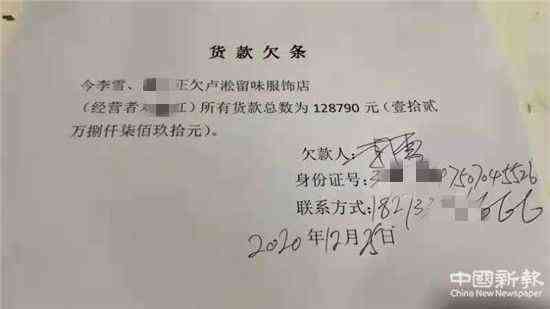 货款欠条
今李雪、 正欠卢淞留味服饰店
（经营者 红）所有货款总数为 128790 元（壹拾贰
万捌仟柒佰玖拾元）。
欠款人：李雪
身份证号：3 7507045526
联系方式：18213 666
2020 年12月25日
中國新報
China New Newspaper